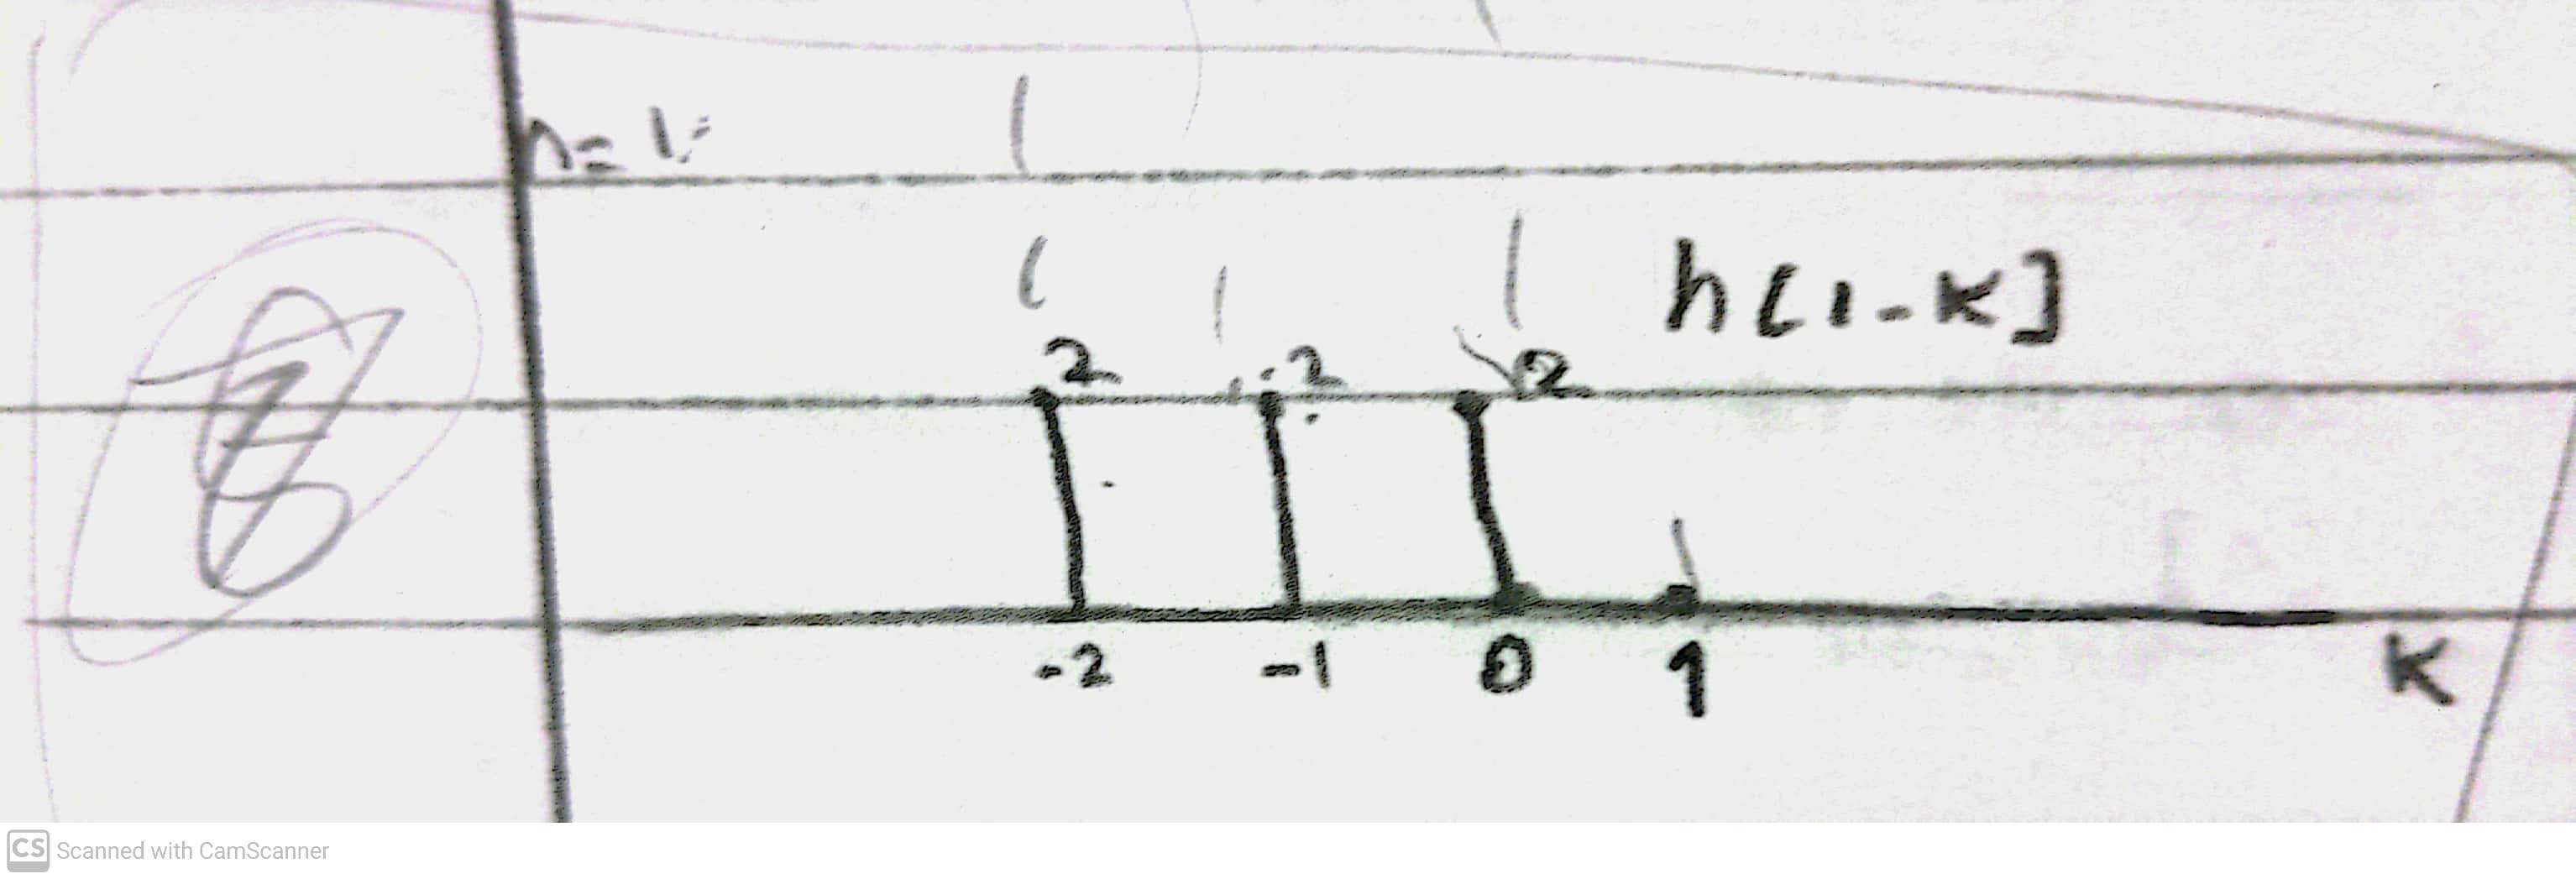 n=1:
h[1-K]
2 2 2
-2 -1 0 1
K
CS Scanned with CamScanner